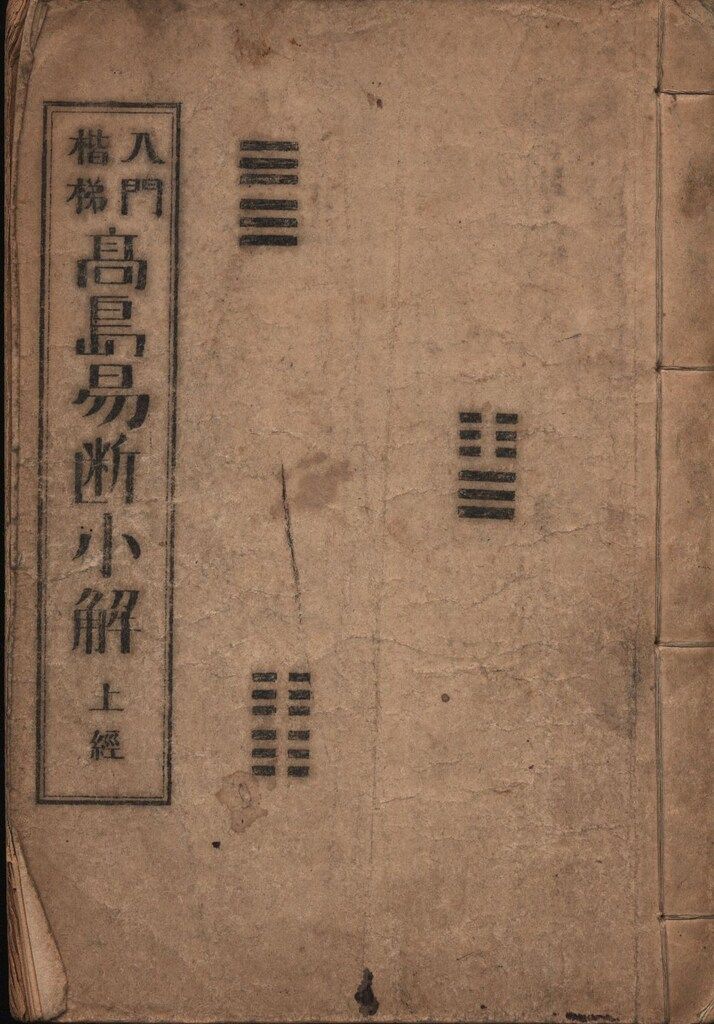 入門
楷梯
髙島易断小解
上經